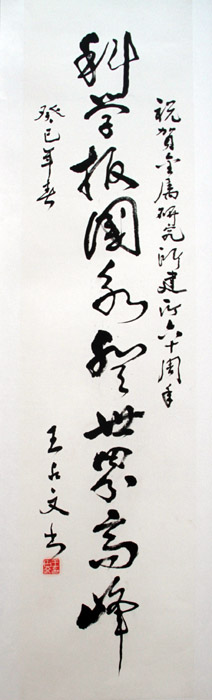 祝贺金属研究所建所六十周年
科学报国永登世界高峰
癸巳年春
王占文书